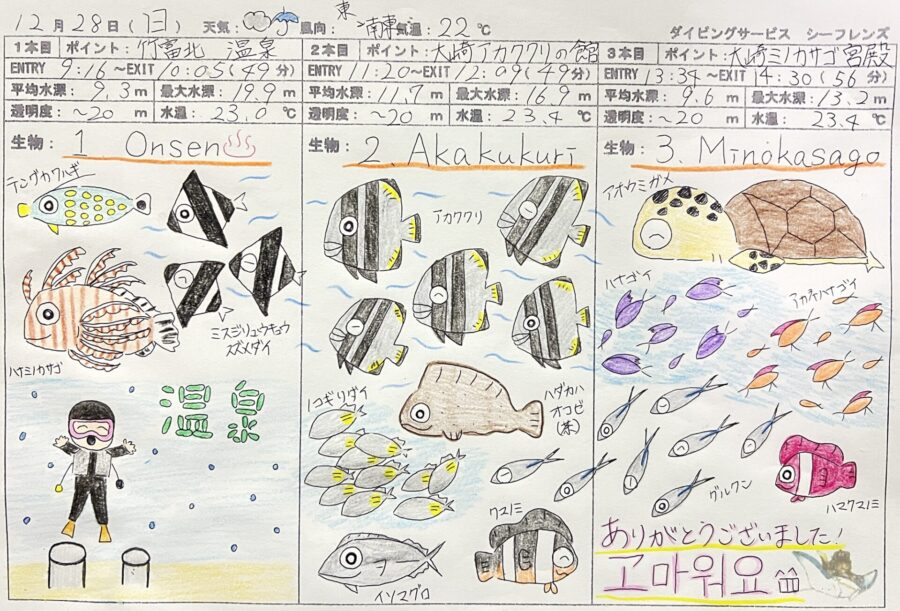 12月28日(日) 天気: 風向: 東~南東 気温: 22 ℃
ダイビングサービス シーフレンズ
1本目 ポイント: 竹富北 温泉
ENTRY 9:16 ～EXIT 10:05 (49分)
平均水深: 9.3 m 最大水深: 19.9 m
透明度: ~20 m 水温: 23.0 ℃
生物: 1 Onsen♨
テングカワハギ
ミスジリュウキュウ
スズメダイ
ハナミノカサゴ
温泉
2本目 ポイント: 大崎アカククリの館
ENTRY 11:20 ～EXIT 12:09 (49分)
平均水深: 11.7 m 最大水深: 16.9 m
透明度: ~20 m 水温: 23.4 ℃
生物: 2. Akakukuri
アカククリ
ノコギリダイ
ハダカハ
オコゼ
(茶)
クマノミ
イソマグロ
3本目 ポイント: 大崎ミノカサゴ宮殿
ENTRY 13:34 ～EXIT 14:30 (56分)
平均水深: 9.6 m 最大水深: 13.2 m
透明度: ~20 m 水温: 23.4 ℃
生物: 3. Minokasago
アオウミガメ
ハナゴイ
アカネハナゴイ
グルクン
ハマクマノミ
ありがとうございました!
고마워요